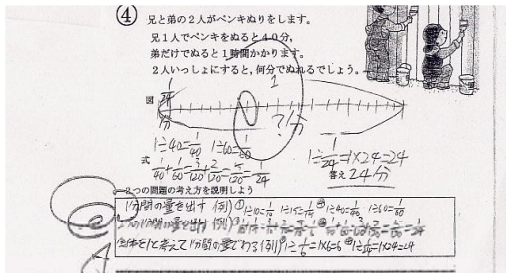 ④
兄と弟の2人がペンキぬりをします。
兄1人でペンキをぬると40分,
弟だけでぬると1時間かかります。
2人いっしょにすると,何分でぬれるでしょう。
図
1/24
1
1分
?分
1÷40=1/40 1÷60=1/60
式 1/40+1/60=3/120+2/120=5/120=1/24
1÷1/24=1×24=24
答え 24分
2つの問題の考え方を説明しよう
1分間の量を出す 例)① 1÷10=1/10 1÷15=1/15 ② 1÷40=1/40 1÷60=1/60
1分間の量を出す 例)
全体を1と考えて1分間の量でわる 例)① 1÷1/6=1×6=6 ② 1÷1/24=1×24=24